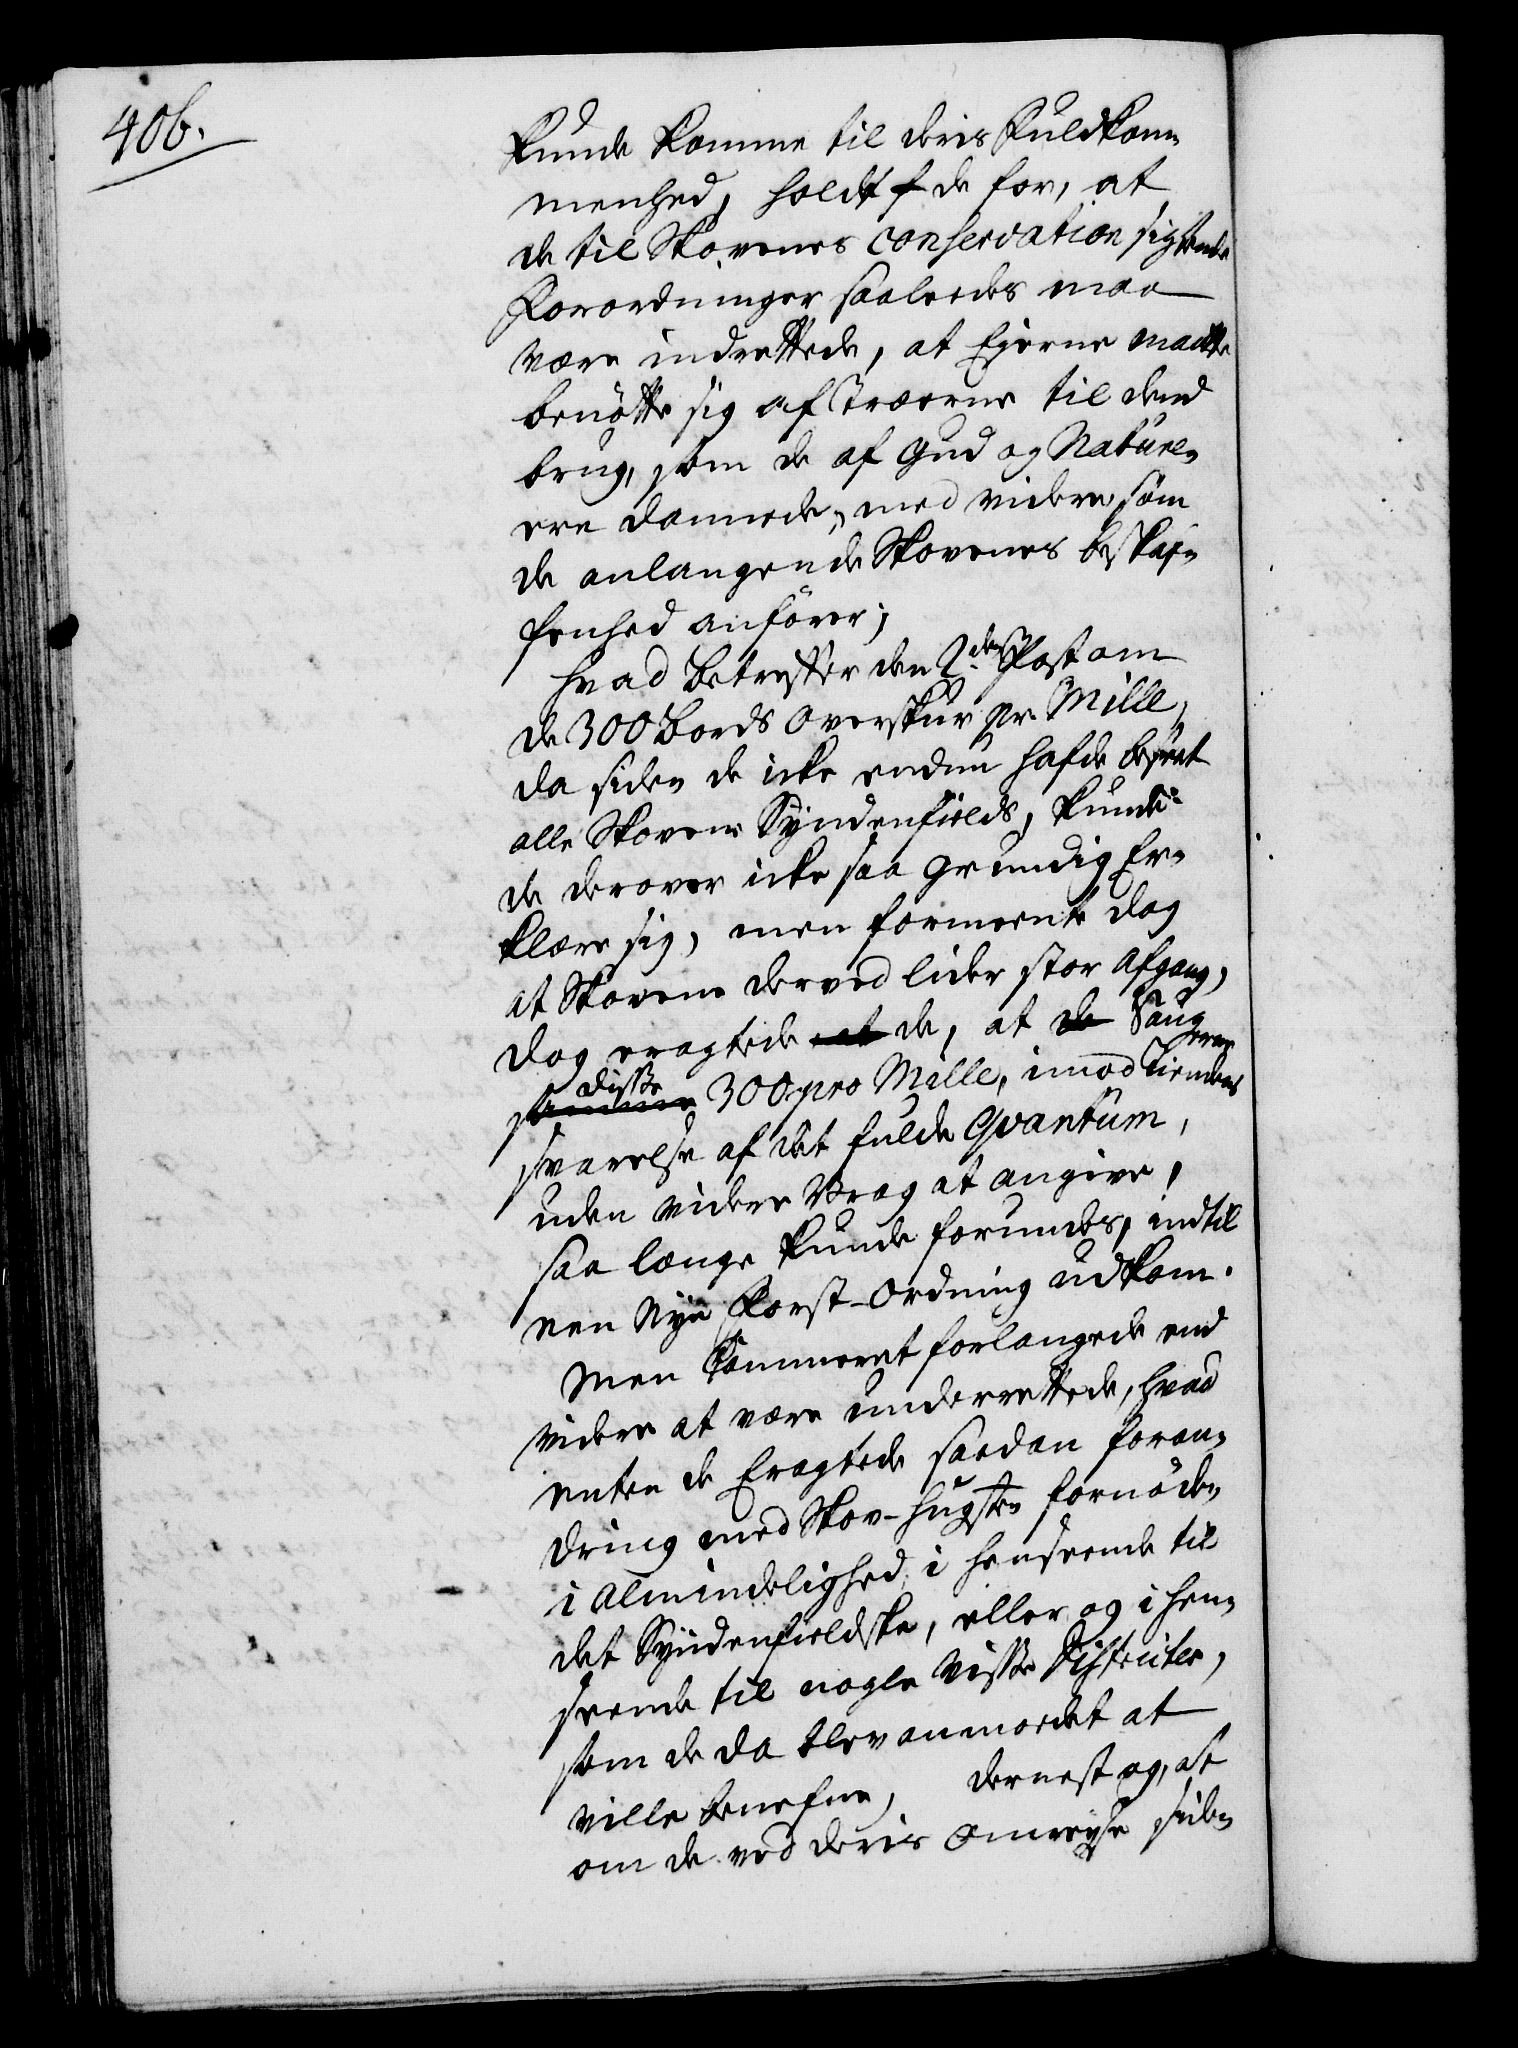 406.
kunde komme til deris Fuldkom-
menhed, holdt de for, at
de til Skovenes conservation sigtende
Forordninger saaledes maa
være indrettede, at Eijerne maatte
benötte sig af Træerne til dend
brug, som de af Gud og Naturen
ere dannede, med videre som
de anlangende Skovenes beskaf-
fenhed anförer;
Hvad betreffer den 2den Post om
de 300 Bords Overskur pr. Mille,
da siden de icke endnu hafde beseet
alle Skovene Syndenfields, kunde
de derover icke saa grundig Er-
klære sig, men formeente dog
at Skovene derved lider stor Afgang,
dog eragtede at de, at de Saug
disse
samme 300 pro Mille, imod Tiendens
svarelse af det fulde Qvantum,
uden videre Vrag at angive,
saa længe kunde forundes, indtil
een Nye Forst-Ordning udkom.
Men Kammeret forlangede end
videre at være underrettede, hvad
enten de Eragtede saadan foran-
dring med Skov-Hugsten fornöden
i Almindelighed, i henseende til
det Syndenfieldske, eller og i hen-
seende til nogle Visse Districter,
som de da blev anmodet at
ville benefne, dernest og, at
om de ved deris Omreyse siden